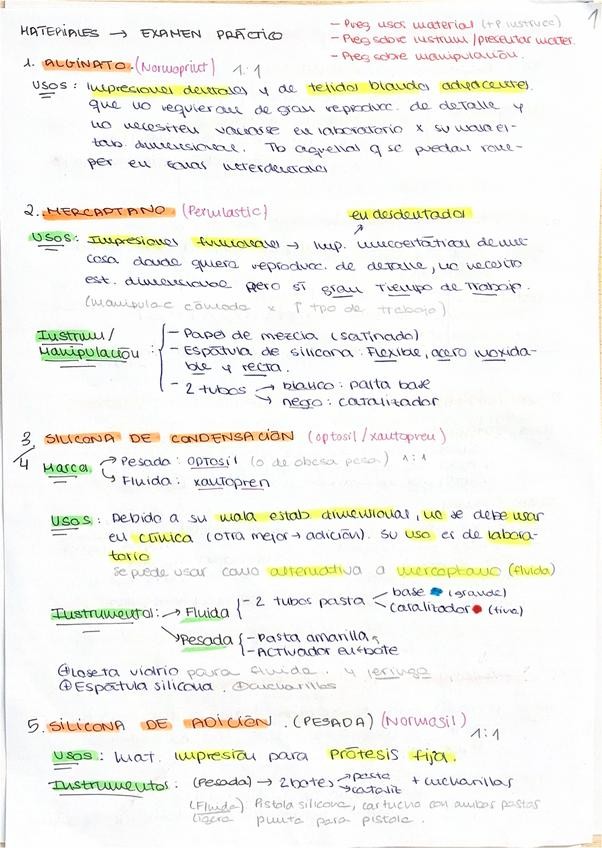 1
MATERIALES → EXAMEN PRÁCTICO
- Preg usos material (+P instrucc)
- Preg sobre instrum/presentac mater.
- Preg sobre manipulación.
1. ALGINATO. (Normoprint) 1:1
USOS: Impresiones dentales y de tejidos blandos adyacentes.
que no requieran de gran reproduc. de detalle y
no necesiten vaciarse en laboratorio x su mala es-
tab. dimensional. Tb aquellas q se puedan rom-
per en zonas interdentales
2. MERCAPTANO (Permlastic)
en desdentados
USOS: Impresiones funcionales → Imp. mucoestáticas de mu-
cosa donde quiero reproduc. de detalle, no necesito
est. dimensional pero sí gran Tiempo de Trabajo.
(manipulac cómoda x ↑ tpo de trabajo)
Instrum/
Manipulación:
- Papel de mezcla (satinado)
- Espátula de silicona: Flexible, acero inoxida-
ble y recta.
- 2 tubos → blanco: pasta base
→ negro: catalizador
3/4 SILICONA DE CONDENSACIÓN (optosil/xautopren)
Marca → Pesada: OPTOSIL (o de obesa pesa) 1:1
→ Fluida: xautopren
USOS: Debido a su mala estab dimensional, no se debe usar
en clínica (otra mejor → adición). Su uso es de labora-
torio
Se puede usar como alternativa a mercaptano (fluida)
Instrumental: → Fluida - 2 tubos pasta base (grande)
catalizador (fino)
→ Pesada - Pasta amarilla
- Activador en bote
⊕ Loseta vidrio para fluida. y jeringa
⊕ Espátula silicona. ⊕ cucharillas
5. SILICONA DE ADICIÓN. (PESADA) (Normasil) 1:1
USOS: Mat. impresión para Prótesis fija.
Instrumentos: (Pesada) → 2 botes → pasta + cucharillas
→ cataliz
(Fluida) Pistola silicona, cartucho con ambas pastas
ligera punta para pistola.